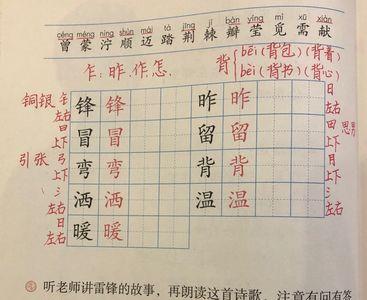 céng méng nìng shùn mài tà jīng jí bàn yíng mì xū xiàn
曾 蒙 泞 顺 迈 踏 荆 棘 瓣 莹 觅 需 献
乍:昨.作.怎.
背
bēi(背包)(背着)
bèi(背书)(背心)
铜 银 钅 锋 锋 昨 日
左右 左右
冒 冒 留 留 田 思 男
上下 上下
引 张 弓 弯 弯 背 背 月
上下 上下
氵 洒 洒 温 温 氵
左右 左右
日 暖 暖
左右
听老师讲雷锋的故事，再朗读这首诗歌，注意有问有答